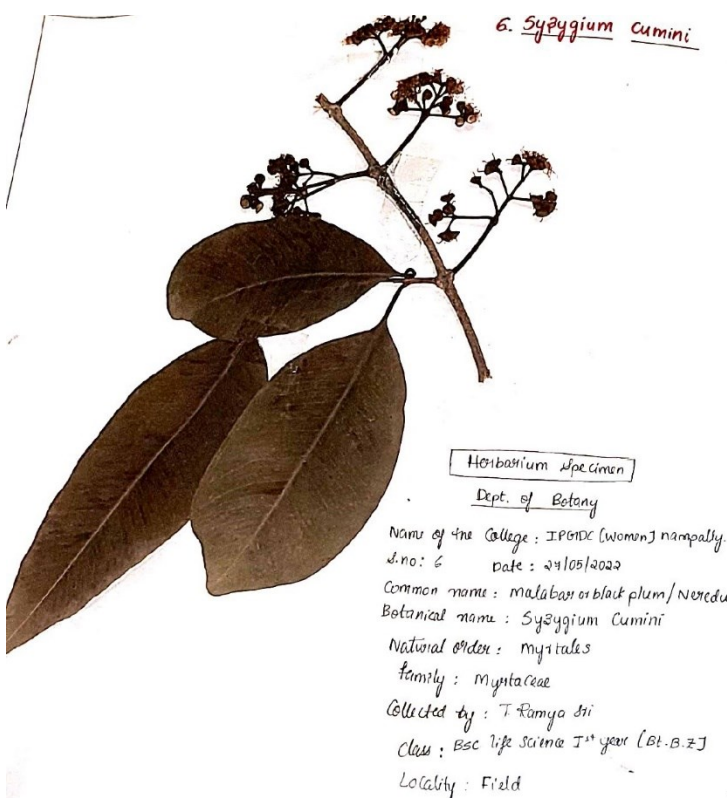 6. Syzygium Cumini
Herbarium Specimen
Dept. of Botany
Name of the College : IPGDC [women] nampally.
S.no: 6 Date : 27/05/2022
Common name : malabar or black plum / Neredu
Botanical name : Syzygium Cumini
Natural order : Myrtales
family : Myrtaceae
Collected by : T Ramya Sri
Class : BSC life science Ist year [Bt.B.Z]
Locality : Field